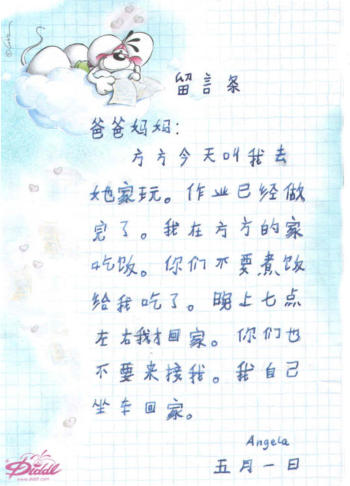 留言条
爸爸妈妈：
方方今天叫我去
她家玩。作业已经做
完了。我在方方的家
吃饭。你们不要煮饭
给我吃了。晚上七点
左右我才回家。你们也
不要来接我。我自己
坐车回家。
Angela
五月一日
Diddl
www.diddl.com